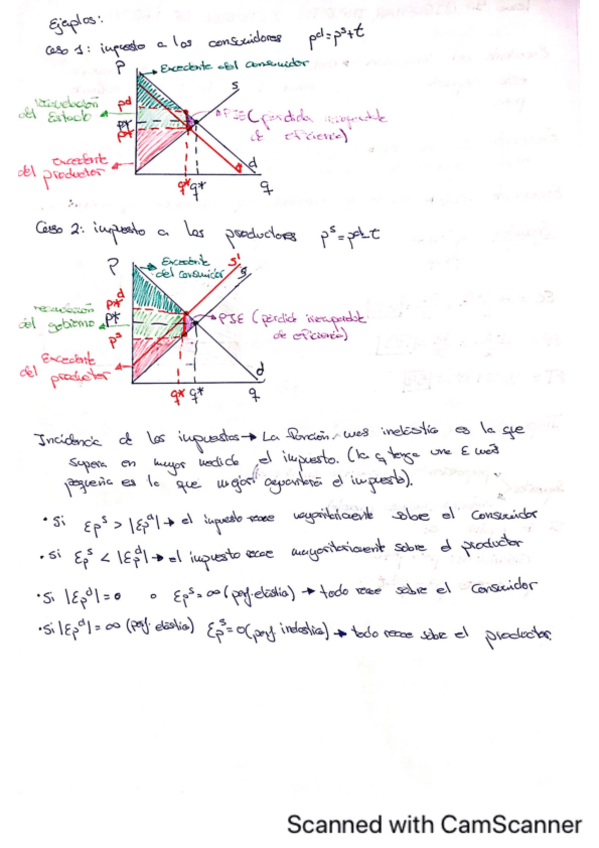 Ejemplos:
Caso 1: impuesto a los consumidores pd=ps+t
P
Excedente del consumidor
s
Recaudación
del Estado
pd
p*
PIE (pérdida irrecuperable
de eficiencia)
Excedente
del productor
d
q* q* q
Caso 2: impuesto a los productores ps=pd-t
P
Excedente
del consumidor
s'
s
d
p*
p*
recaudación
del gobierno
PIE (pérdida irrecuperable
de eficiencia)
ps
Excedente
del productor
d
q* q* q
Incidencia de los impuestos → La función mas inelástica es la que
supera en mayor medida el impuesto. (la q tenga una E más
pequeña es la que mejor aguantará el impuesto).
• Si Eps > |Epd| → el impuesto recae mayoritariament sobre el consumidor
• Si Eps < |Epd| → el impuesto recae mayoritariament sobre el productor
• Si |Epd| = 0 o Eps = ∞ (perf. elástica) → todo recae sobre el consumidor
• Si |Epd| = ∞ (perf. elástica) Eps = 0 (perf. inelástica) → todo recae sobre el productor.
Scanned with CamScanner